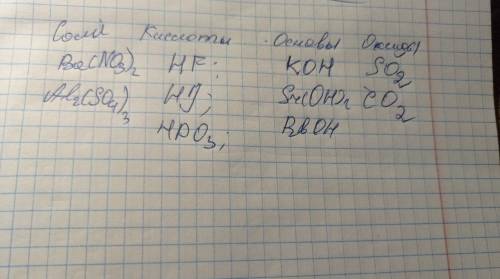 Соли Кислоты Основы Оксиды
Ba(NO3)2 HF; KOH SO2
Al2(SO4)3 HJ; Sr(OH)2 CO2
HPO3; RbOH